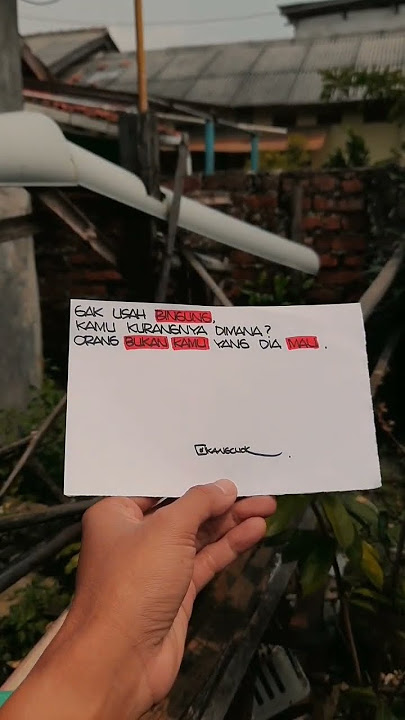 GAK USAH BINGUNG,
KAMU KURANGNYA DIMANA?
ORANG BUKAN KAMU YANG DIA MAU.